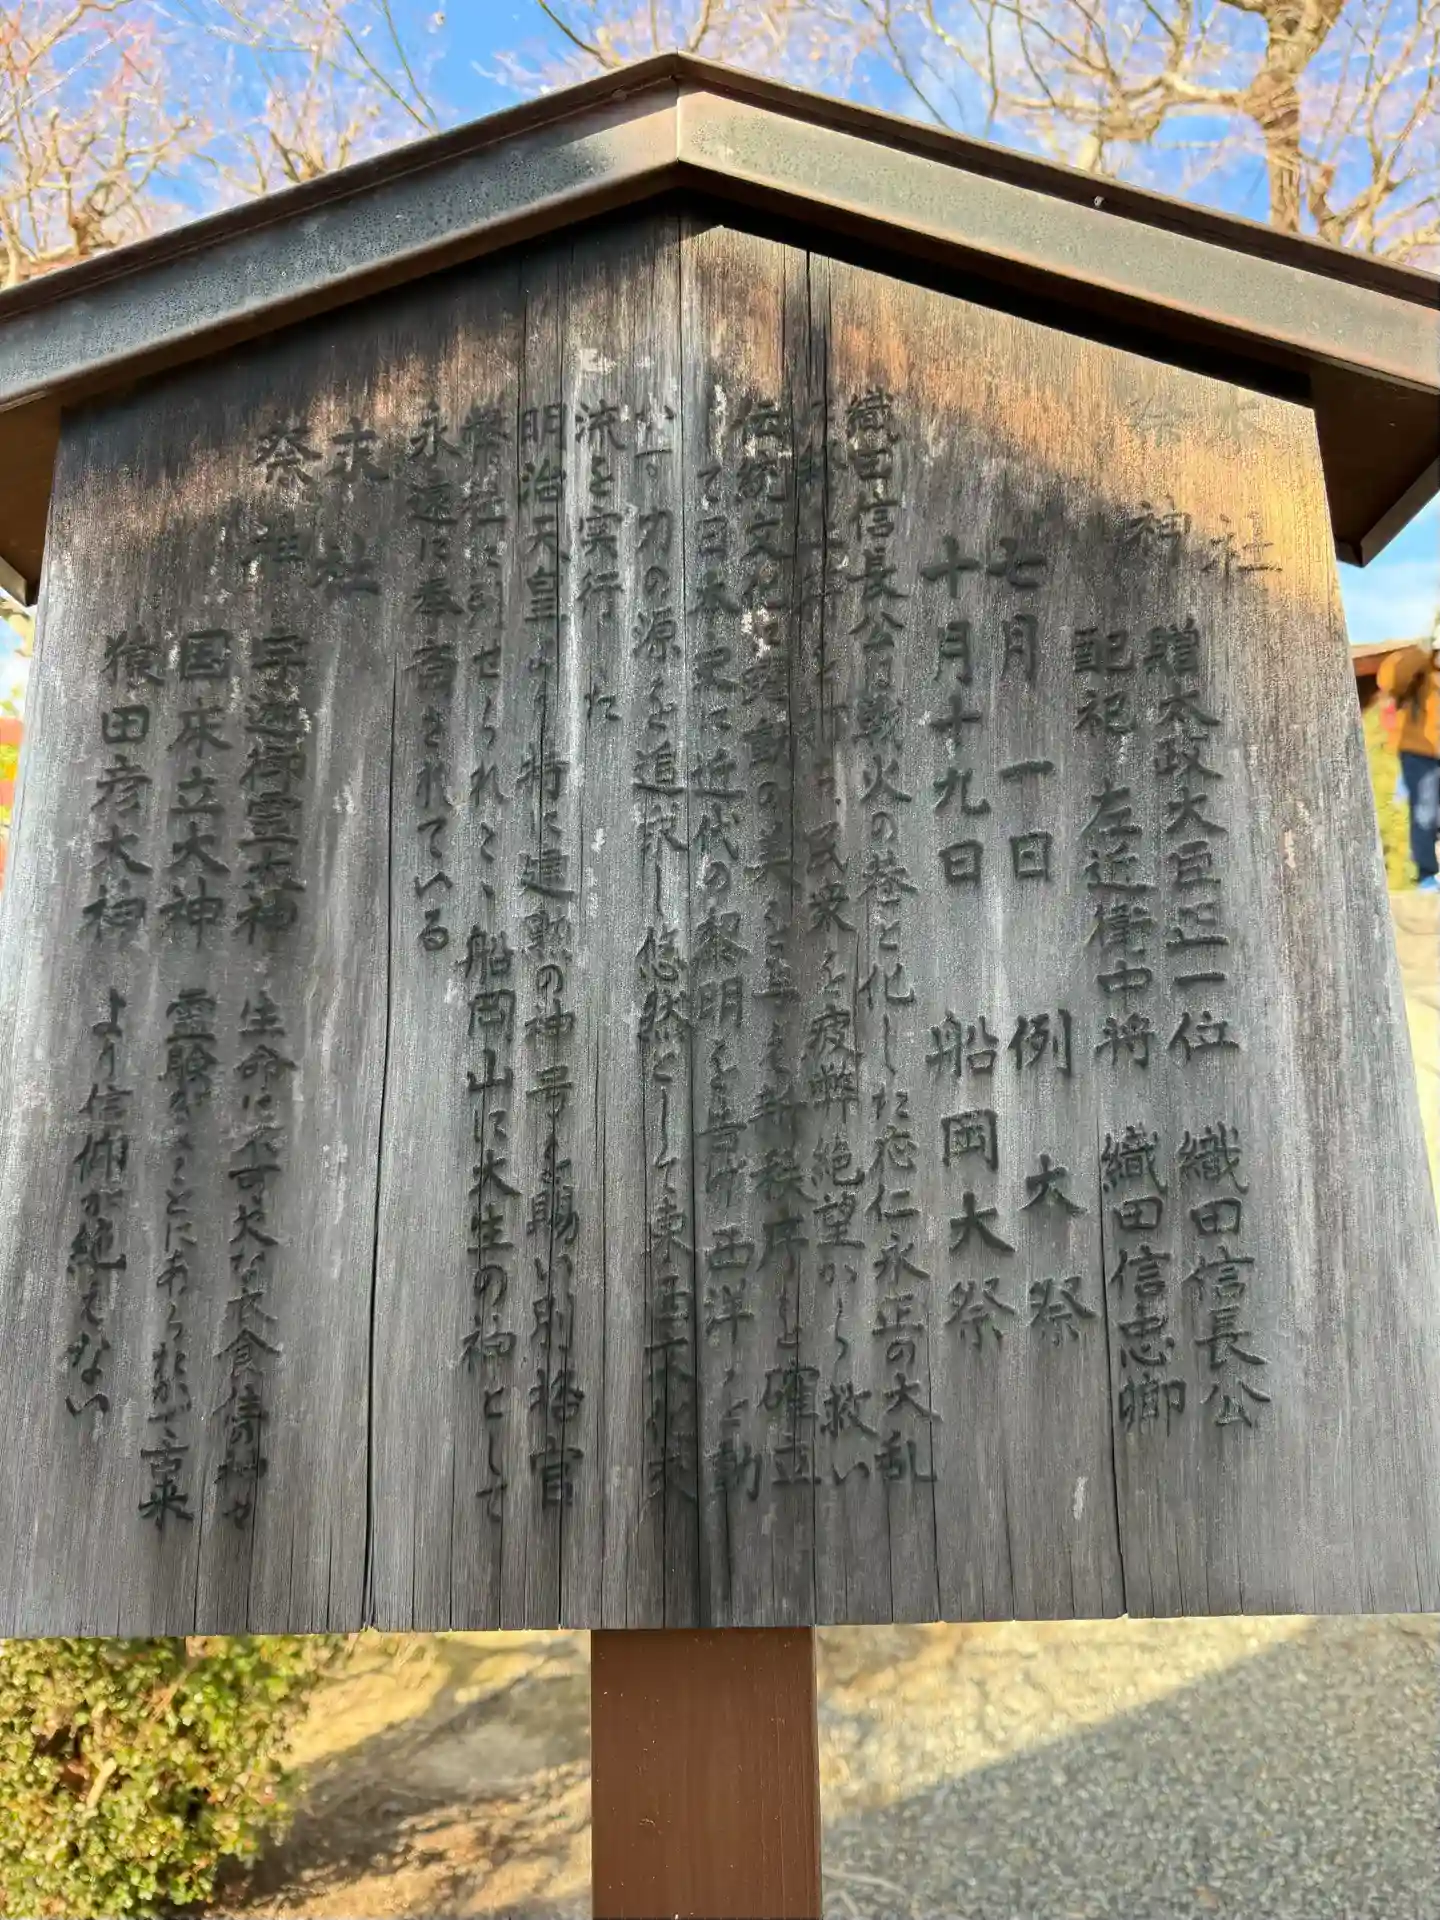 本社
祭神
贈太政大臣正一位 織田信長公
配祀 左近衛中将 織田信忠卿
七月 一日 例大祭
十月十九日 船岡大祭
織田信長公は戦火の巷と化した応仁永正の大乱
民衆を疲弊絶望から救い
伝統文化に躍動の美を与え新秩序を確立
して日本史に近代の黎明を告げ西洋を動
かす力の源を追求し悠然として東西文化交
流を実行した
明治天皇より特に建勲の神号を賜い別格官
幣社に列せられ、船岡山に大生の神として
永遠に奉斎されている
末社
祭神
宇迦御霊大神 生命に不可欠な衣食住の神で
国床立大神 霊験がことにあらたかで古来
猿田彦大神 より信仰が絶えない